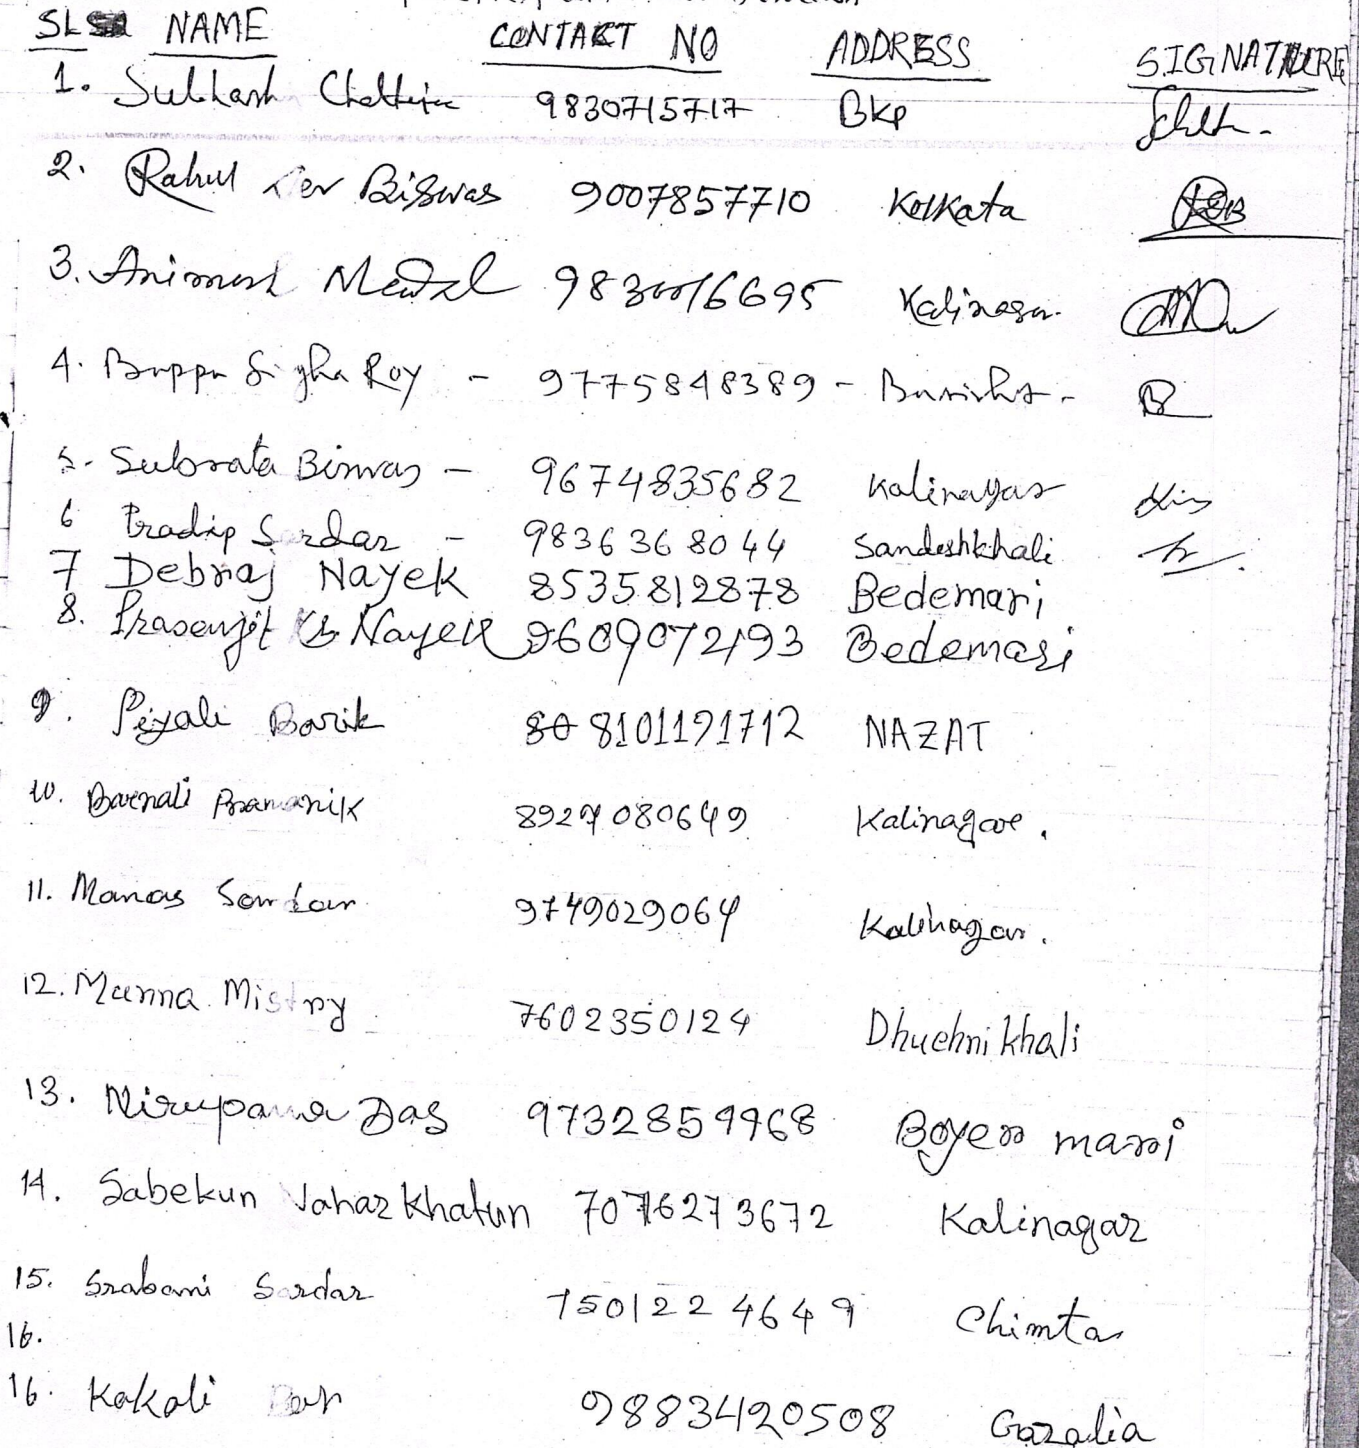 SL NAME CONTACT NO ADDRESS SIGNATURE
1. Subhash 9830715717 Bkp
2. Rahul Dev Biswas 9007857710 Kolkata
3. Animesh 9830016695 Kalinagar
4. Bappa Sigha Roy - 9775848389 - Barisha -
5. Subrata Biswas - 9674835682 Kalinagar
6 Pradip Sardar - 9836368044 Sandeshkhali
7 Debraj Nayek 8535812878 Bedemari
8. Prasenjit Nayek 9609072193 Bedemari
9. Piyali Barik 8101191712 NAZAT
10. Barnali Pramanik 8927080649 Kalinagar.
11. Manas Sardar 9749029064 Kalinagar.
12. Munna Mistry 7602350124 Dhuchnikhali
13. Nirupama Das 9732859968 Boyer mari
14. Sabekun Nahar Khatun 7076273672 Kalinagar
15. Srabani Sardar 7501224649 Chimta
16.
16. Kakali 9883420508 Gazalia